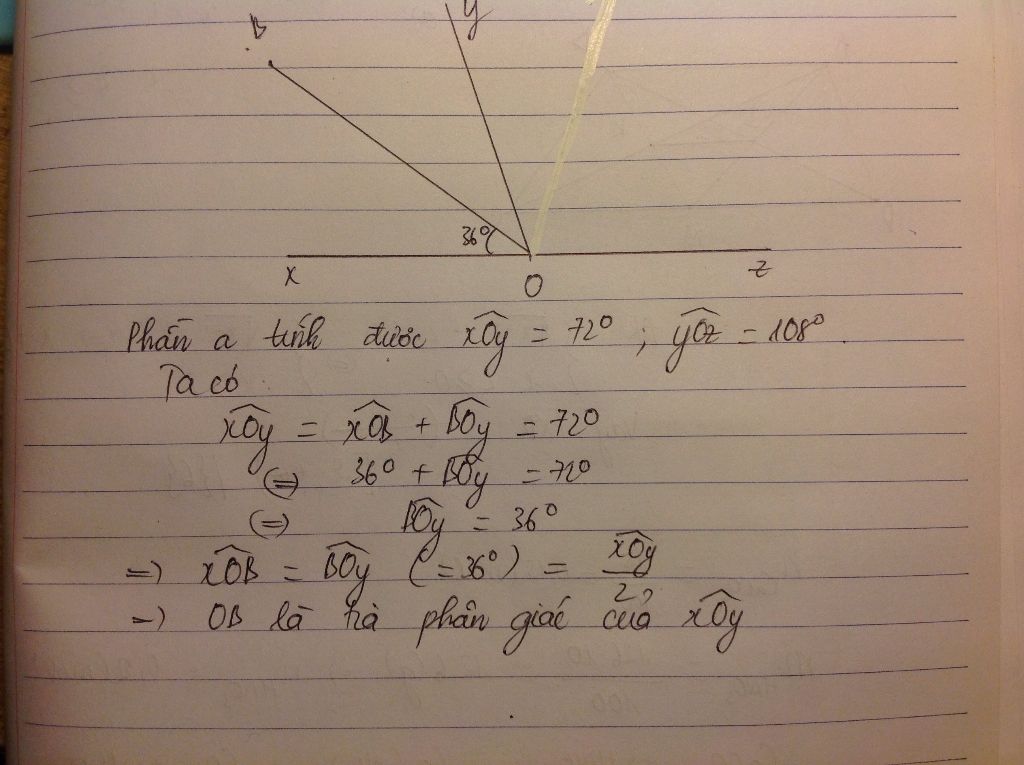 B y
36°
x O z
Phần a tính được xÔy = 72° ; yÔz = 108°.
Ta có
xÔy = xÔB + BÔy = 72°
(=) 36° + BÔy = 72°
(=) BÔy = 36°
=) xÔB = BÔy (=36°) = xÔy / 2
=) OB là tia phân giác của xÔy